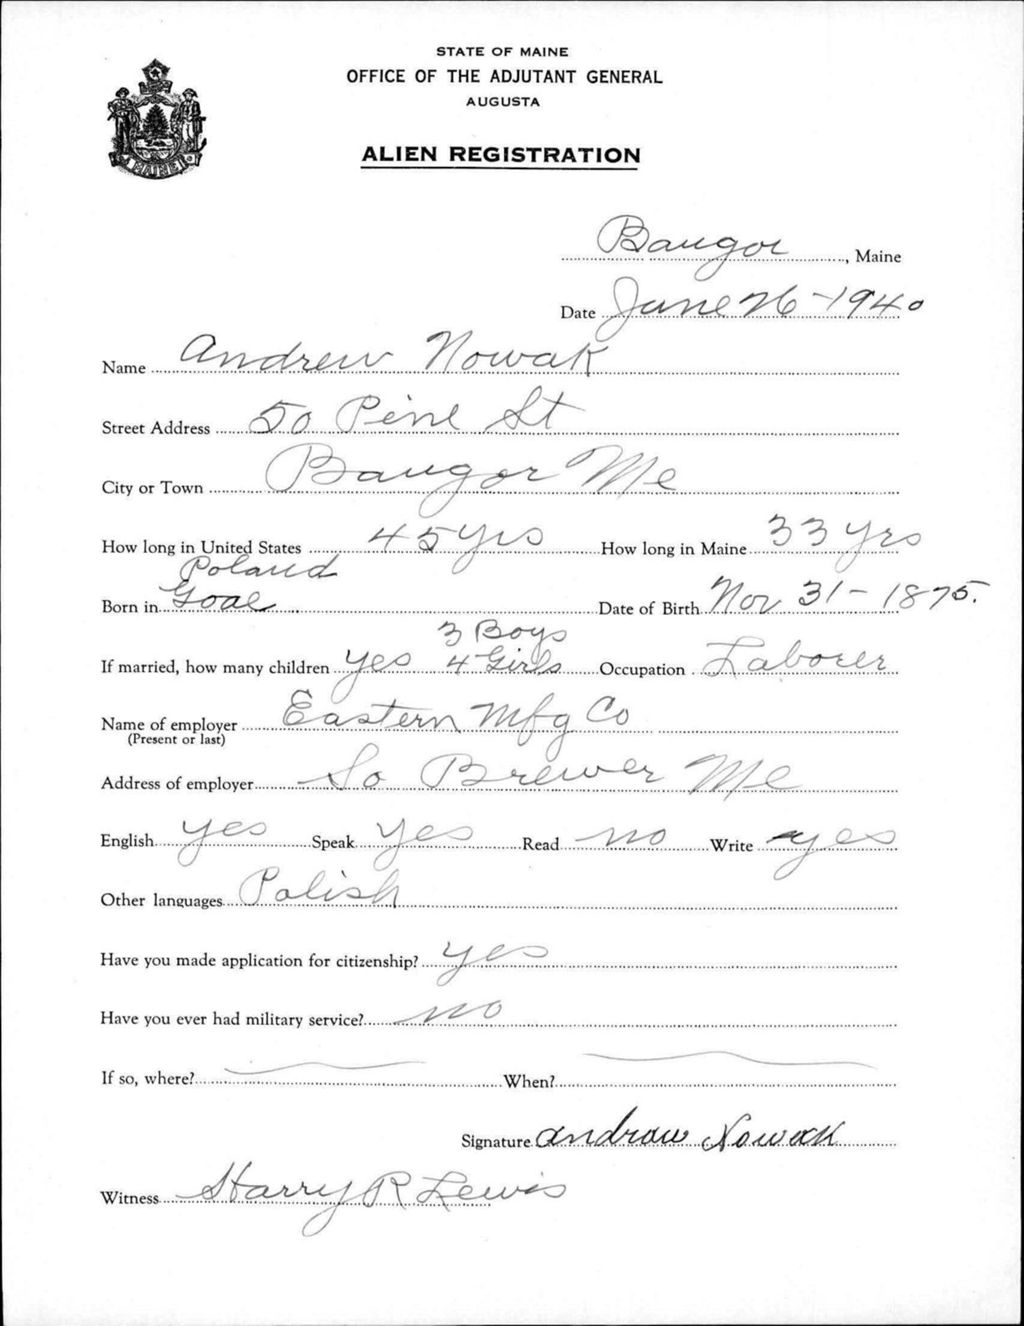 STATE OF MAINE
OFFICE OF THE ADJUTANT GENERAL
AUGUSTA
ALIEN REGISTRATION
MAINE
Bangor, Maine
Date June 26-1940
Name Andrew Nowak
Street Address 50 Pine St
City or Town Bangor Me
How long in United States 45 yrs How long in Maine 33 yrs
Poland
Born in Goal Date of Birth Nov 31-1875.
3 Boys
If married, how many children yes 4 Girls Occupation Laborer
Name of employer Eastern Mfg Co
(Present or last)
Address of employer So Brewer Me
English yes Speak yes Read no Write yes
Other languages Polish
Have you made application for citizenship? yes
Have you ever had military service? no
If so, where? When?
Signature Andraw Nowak
Witness Harry R Lewis